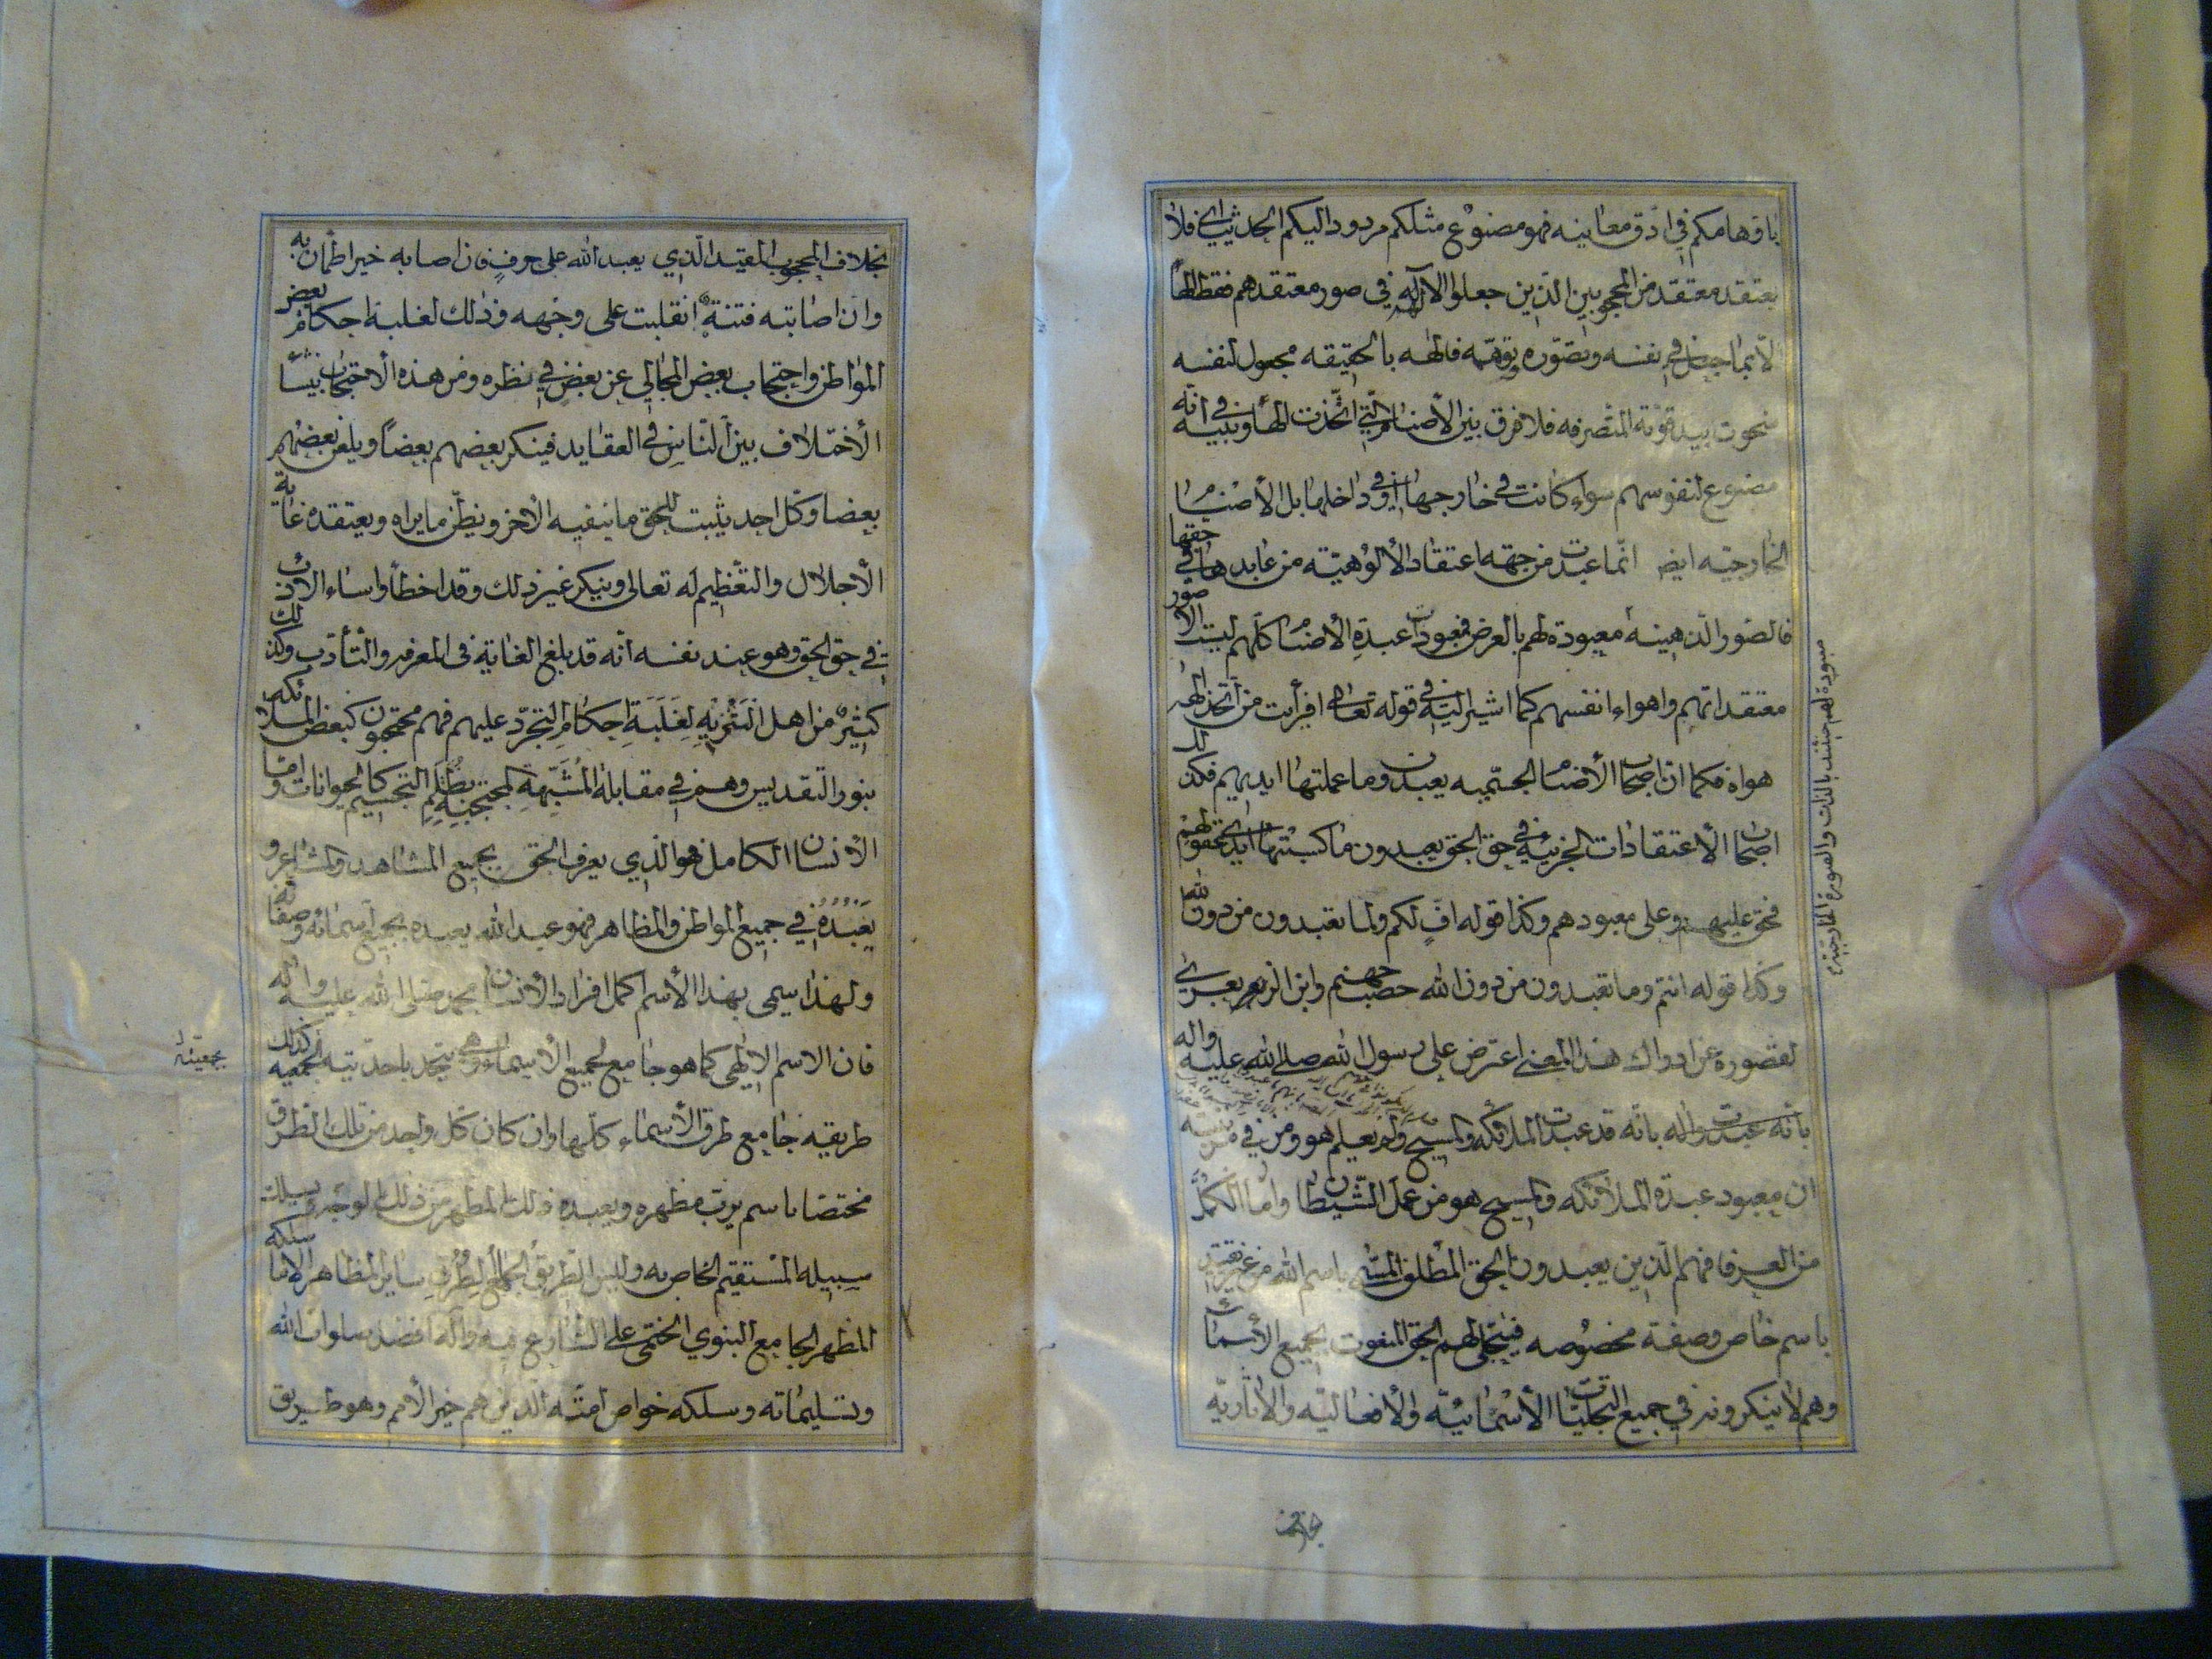 باوهامكم في ادق معانيه فهو مصنوع مثلكم مردود اليكم الحديث اي فلا
يعتقد معتقد من المحجوبين الذين جعلوا الاله في صور معتقدهم فقط الها
الا بما جعل في نفسه وتصوره بوهمه فالهه بالحقيقه مجعول لنفسه
منحوت بيد قوته المتصرفه فلا فرق بين الأصنام التي اتخذت الها وبينه في انه
مصنوع لنفوسهم سواء كانت في خارجها او في داخلها بل الأصنام
الخارجيه ايضا انما عبدت من جهه اعتقاد الألوهيته من عابدها في حقها
فالصور الذهنيه معبودة لهم بالعرض فمعبودات عبدة الأصنام كلهم ليست الا صور
معتقداتهم واهواء انفسهم كما اشير اليه في قوله تعالى افرأيت من اتخذ الهه
هواه فكما ان اصحاب الأصنام الجسميه يعبدون وما عملتها ايديهم فكذلك
اصحاب الأعتقادات الجزئيه في حق الحق يعبدون ما كسبتها ايدي عقولهم
فحق عليهم وعلى معبودهم وكذا قوله اف لكم ولما تعبدون من دون الله
وكذا قوله انتم وما تعبدون من دون الله حصب جهنم وابن الزبعرى
لقصوره عن ادراك هذا المعنى اعترض على رسول الله صلى الله عليه واله
بانه عبدت واله بانه قد عبدت الملائكه والمسيح ولم يعلم هو ومن في مرتبته
ان معبود عبدة الملائكه والمسيح هو من عمل الشيطان واما الكمل
من العرفا فهم الذين يعبدون الحق المطلق المسمى باسم الله من غير تقييد
باسم خاص وصفة مخصوصه فيتجلى لهم الحق المنعوت بجميع الأسماء
وهم لا ينكرونه في جميع التجليات الأسمائيه والأفعاليه والآثاريه
معبودة لهم حينئذ بالذات والصورة الخارجية
بخلاف
بخلاف المحجوب المقيد الذي يعبد الله على حرف فان اصابه خير اطمأن به
وان اصابته فتنة انقلبت على وجهه وذلك لغلبة احكام بعض
المواطن واحتجاب بعض المجالي عن بعض في نظره ومن هذه الأحتجاب ينشأ
الأختلاف بين الناس في العقايد فينكر بعضهم بعضا ويلعن بعضهم
بعضا وكل احد يثبت للحق ما ينفيه الأخر ويظن ما يراه ويعتقده غاية
الأجلال والتعظيم له تعالى وينكر غير ذلك وقد اخطأ واساء الادب
في حق الحق وهو عند نفسه انه قد بلغ الغاية في المعرفه والتأدب وكذلك
كثير من اهل التنزيه لغلبة احكام التجرد عليهم فهم محتجبون كبعض الملائكه
بنور التقديس وهم في مقابلة المشبهة المحتجبة بظلم التجسيم كالحيوانات واما
الأنسان الكامل فهو الذي يعرف الحق بجميع المشاهد والمشاعر و
يعبده في جميع المواطن والمظاهر فهو عبد الله يعبده بجميع اسمائه وصفاته
ولهذا سمى بهذا الأسم اكمل افراد الأنسان محمد صلى الله عليه واله
فان الاسم الإلهي كما هو جامع لجميع الأسماء وهي يتحد باحديته الجمعيه كذلك
طريقه جامع طرق الأسماء كلها وان كان كل واحد من تلك الطرق
مختصا باسم يرب مظهره ويعبده ذلك المظهر من ذلك الوجه ويسلك
سبيله المستقيم الخاص به وليس الطريق الجامع لطرق ساير المظاهر الا ما سلكه
المظهر الجامع النبوي الختمي على الشارع فيه واله افضل صلوات الله
وتسليماته وسلكه خواص امته الذين هم خير الأمم وهو طريق